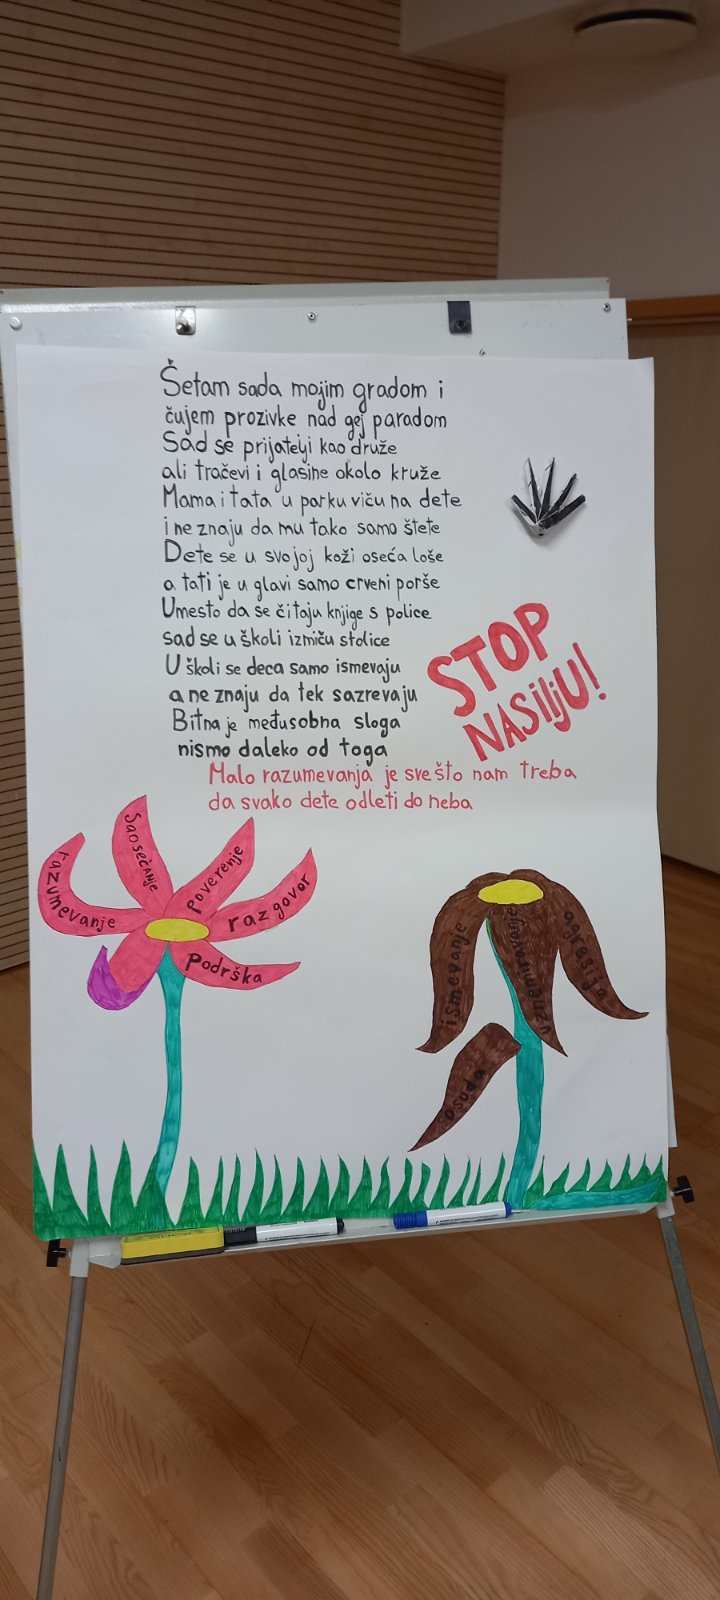 Šetam sada mojim gradom i
čujem prozivke nad gej paradom
Sad se prijatelji kao druže
ali tračevi i glasine okolo kruže
Mama i tata u parku viču na dete
i ne znaju da mu tako samo štete
Dete se u svojoj koži oseća loše
a tati je u glavi samo crveni porše
Umesto da se čitaju knjige s police
sad se u školi izmiču stolice
U školi se deca samo ismevaju
a ne znaju da tek sazrevaju
Bitna je međusobna sloga
nismo daleko od toga
Malo razumevanja je sve što nam treba
da svako dete odleti do neba
STOP
NASilJU!
razumevanje
Saosećanje
poverenje
razgovor
Podrška
ismevanje
uznemiravanje
agresija
osuda